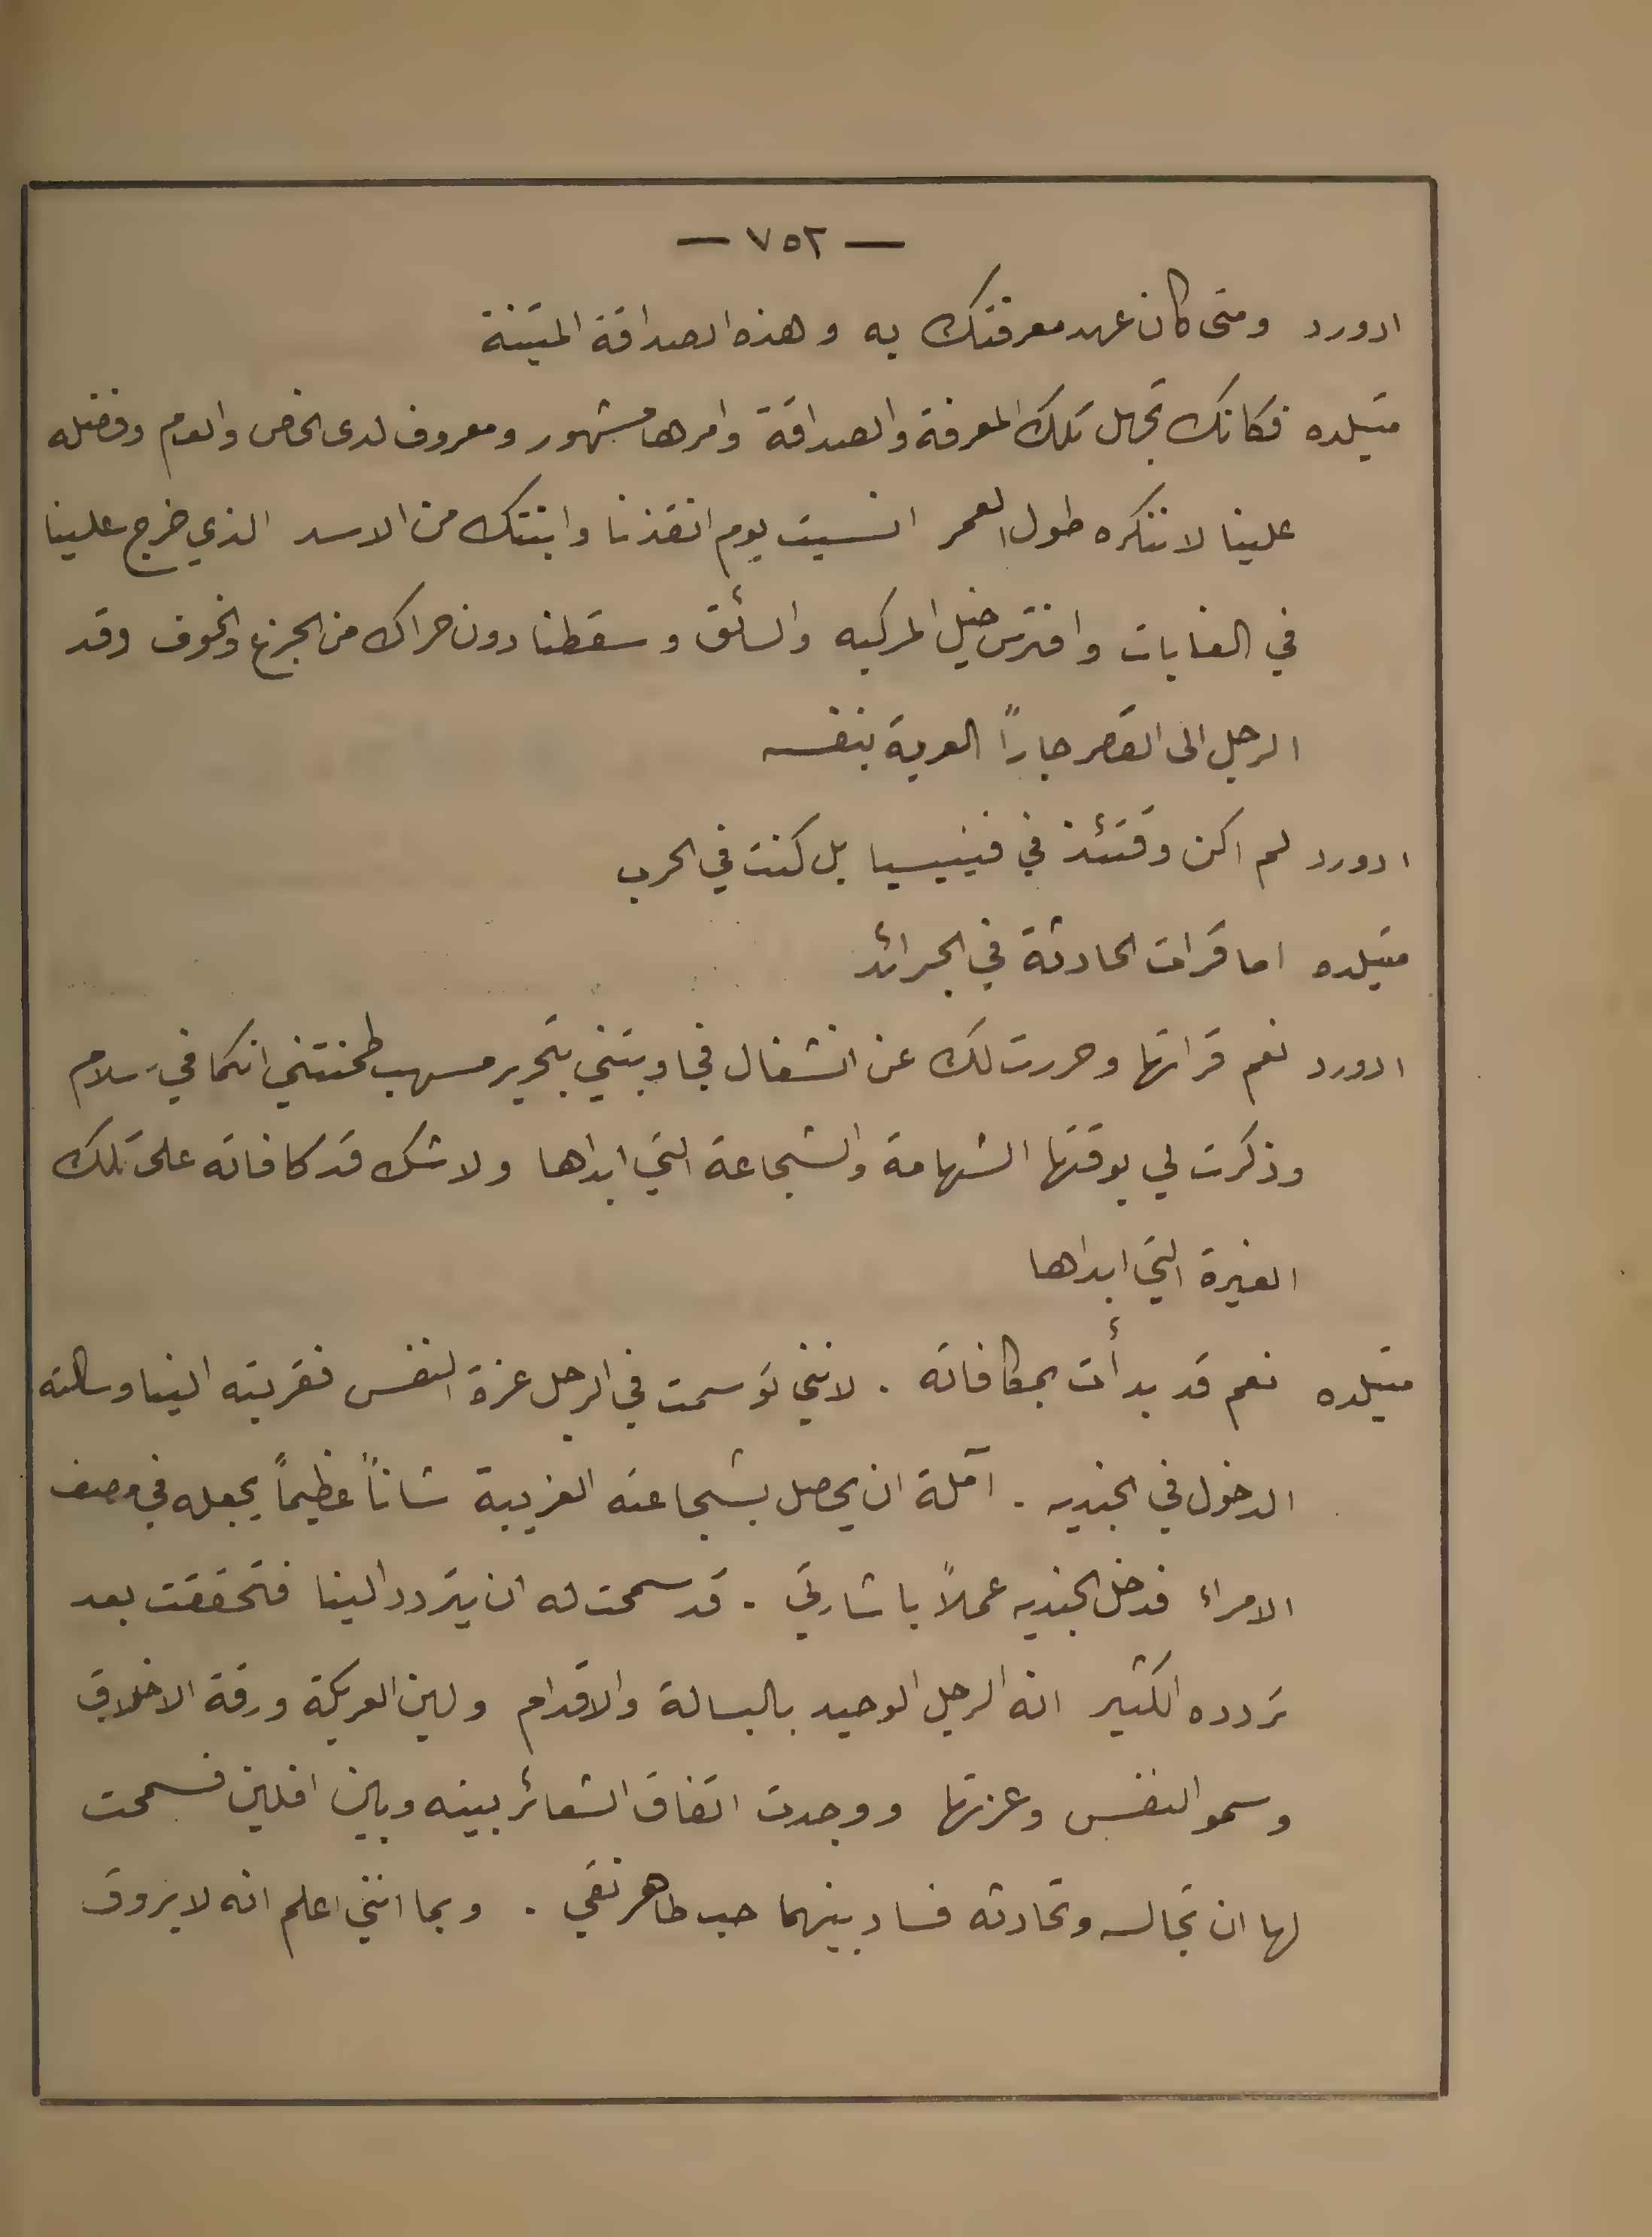 — ٧٥٢ —
ادورد ومتى كان عهد معرفتك به وهذه الصداقة المتينة
متيلده فكانك تجهل تلك المعرفة والصداقة وامرها مشهور ومعروف لدى الخاص والعام وفضله
علينا لا ننكره طول العمر انسيت يوم انقذنا وابنتك من الاسد الذي خرج علينا
في الغابات وافترس خيل المركبه والسائق وسقطنا دون حراك من الجزع والخوف وقد
الرجل الى القصر جاراً العربة بنفسه
ادورد لم اكن وقتئذ في فينيسيا بل كنت في الحرب
متيلده اما قرات الحادثة في الجرائد
ادورد نعم قراتها وحررت لك عن انشغال فجاوبتني بتحرير مسهب طمنتني انكما في سلام
وذكرت لي بوقتها الشهامة والشجاعة التي ابداها ولا شك قد كافاته على تلك
الغيرة التي ابداها
متيلده نعم قد بدأت بمكافاته . لانني توسمت في الرجل عزة النفس فقربته الينا وسالته
الدخول في الجنديه . آملة ان يحصل بشجاعته الغريبة شاناً عظيماً يجعله في مصف
الامراء فدخل الجنديه عملاً باشارتي . قد سمحت له ان يتردد الينا فتحققت بعد
تردده الكثير انه الرجل الوحيد بالبسالة والاقدام ولين العريكة ورقة الاخلاق
وسمو النفس وعزتها ووجدت اتفاق الشعائر بينه وبين افلين فسمحت
لها ان تجالسه وتحادثه فساد بينهما حب طاهر نقي . وبما انني اعلم انه لا يروق